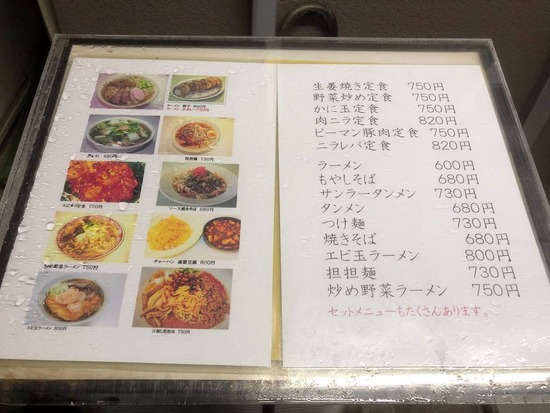 ラーメン 餃子 800円
タンメン 680円
担担麺 730円
エビチリ定食 750円
ソース焼きそば 680円
炒め野菜ラーメン 750円
チャーハン 麻婆豆腐 800円
エビ玉ラーメン 800円
汁無し担担麺 750円
生姜焼き定食 750円
野菜炒め定食 750円
かに玉定食 750円
肉ニラ定食 820円
ピーマン豚肉定食 750円
ニラレバ定食 820円
ラーメン 600円
もやしそば 680円
サンラータンメン 730円
タンメン 680円
つけ麺 730円
焼きそば 680円
エビ玉ラーメン 800円
担担麺 730円
炒め野菜ラーメン 750円
セットメニューもたくさんあります。